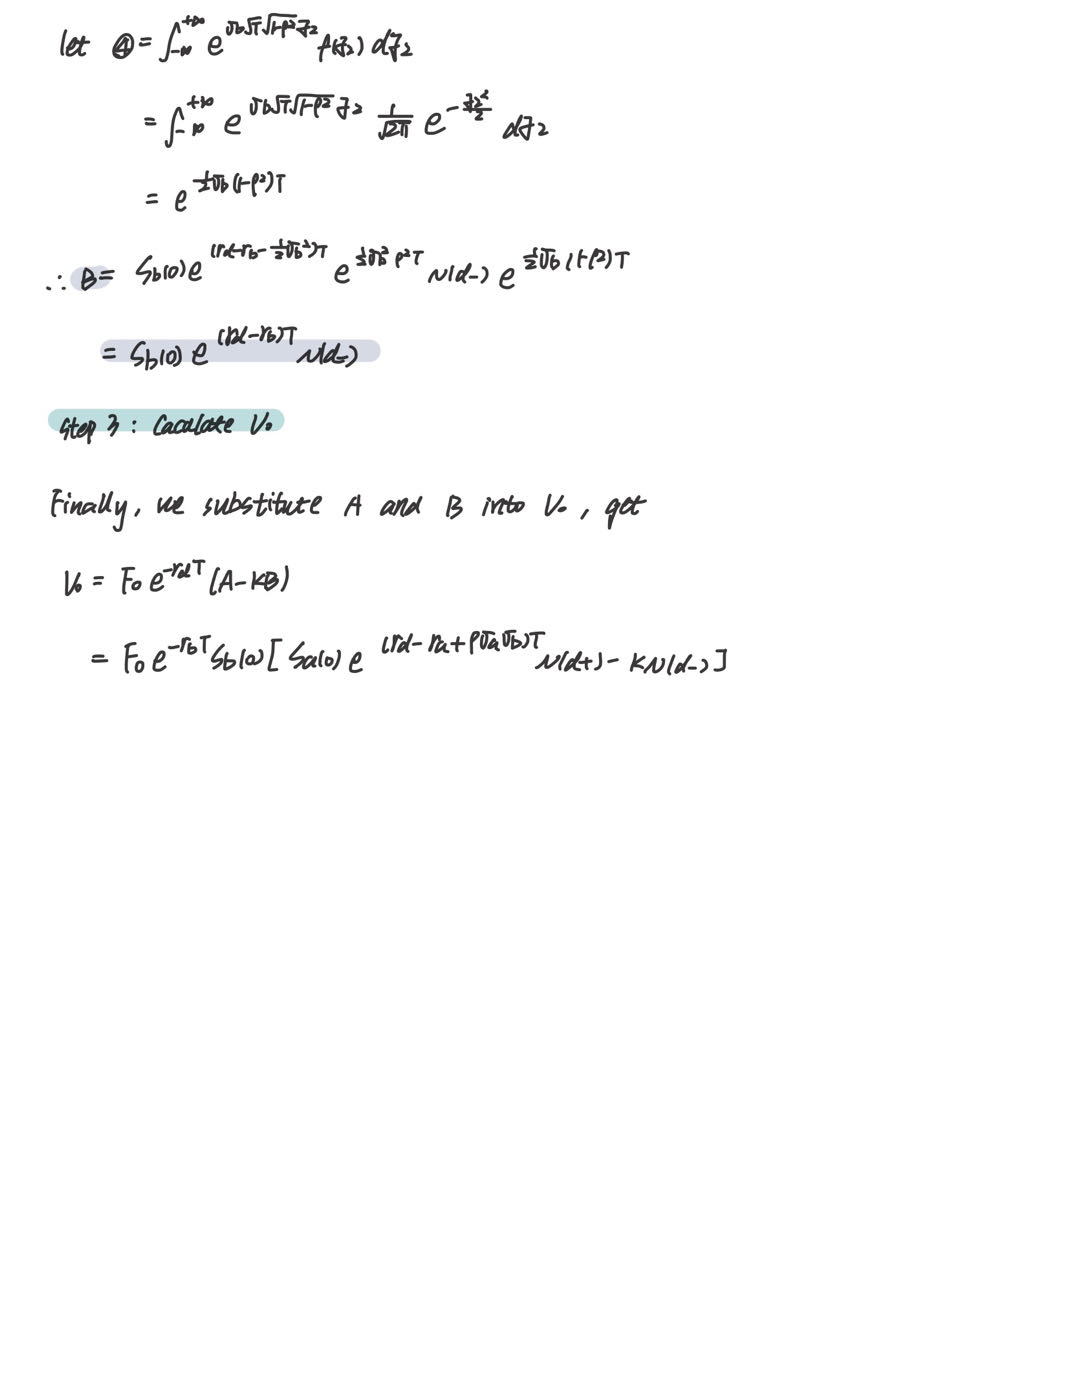 let ④ = ∫_{-∞}^{+∞} e^{σb√T√(1-ρ²)z₂} f(z₂) dz₂
= ∫_{-∞}^{+∞} e^{σb√T√(1-ρ²)z₂} 1/√(2π) e^{-z₂²/2} dz₂
= e^{½σb(1-ρ²)T}
∴ B = Sb(0)e^{(rd-rb-½σb²)T} e^{½σb²ρ²T} N(d-) e^{½σb(1-ρ²)T}
= Sb(0) e^{(rd-rb)T} N(d-)
Step 3 : Caculate V₀
Finally, we substitute A and B into V₀, get
V₀ = F₀ e^{-rdT} (A-KB)
= F₀ e^{-rbT} Sb(0) [ Sa(0) e^{(rd-ra+ρσaσb)T} N(d+) - KN(d-) ]